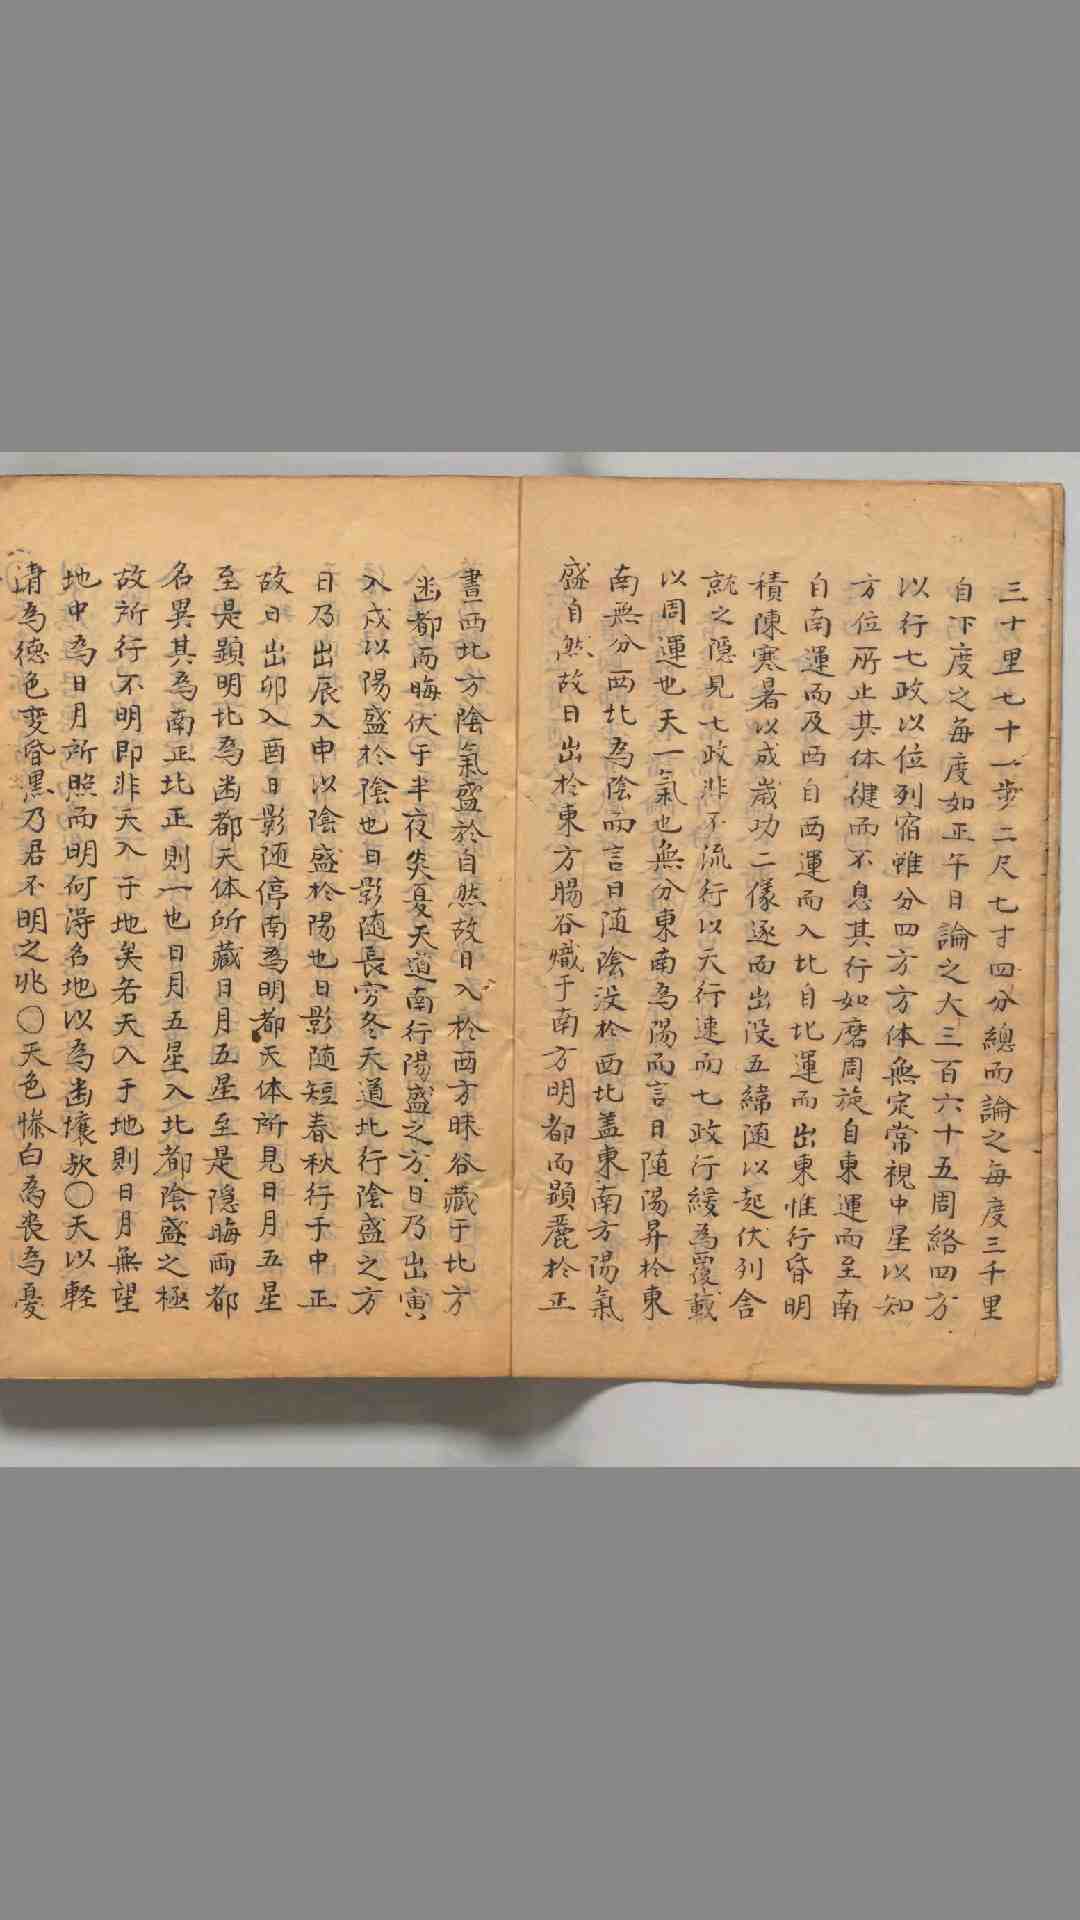 三十里七十一步二尺七寸四分總而論之每度三千里
自下度之每度如正午日論之大三百六十五周絡四方
以行七政以位列宿雖分四方方体無定常視中星以知
方位所止其体健而不息其行如磨周旋自東運而至南
自南運而及西自西運而入北自北運而出東惟行昏明
積陳寒暑以成嵗功二儀逐而出沒五緯随以起伏列舍
就之隠見七政非不流行以天行速而七政行緩為覆載
以周運也天一氣也無分東南為陽而言日随陽昇於東
南無分西北為陰而言日随陰没於西北盖東南方陽氣
盛自然故日出於東方腸谷熾于南方明都而顕麗於正
晝西北方陰氣盛於自然故日入於酉方昧谷藏于北方
幽都而晦伏于半夜炎夏天道南行陽盛之方日乃出寅
入戌以陽盛於陰也日影随長穷冬天道北行陰盛之方
日乃出辰入申以陰盛於陽也日影随短春秋行于中正
故日出卯入酉日影随停南為明都天体所見日月五星
至是顕明北為幽都天体所藏日月五星至是隠晦両都
名異其為南正北正則一也日月五星入北都陰盛之極
故所行不明即非天入于地矣若天入于地則日月無望
地中為日月所照而明何得名地以為幽壤欤〇天以軽
清為徳色变昏黒乃君不明之兆〇天色惨白為喪為憂